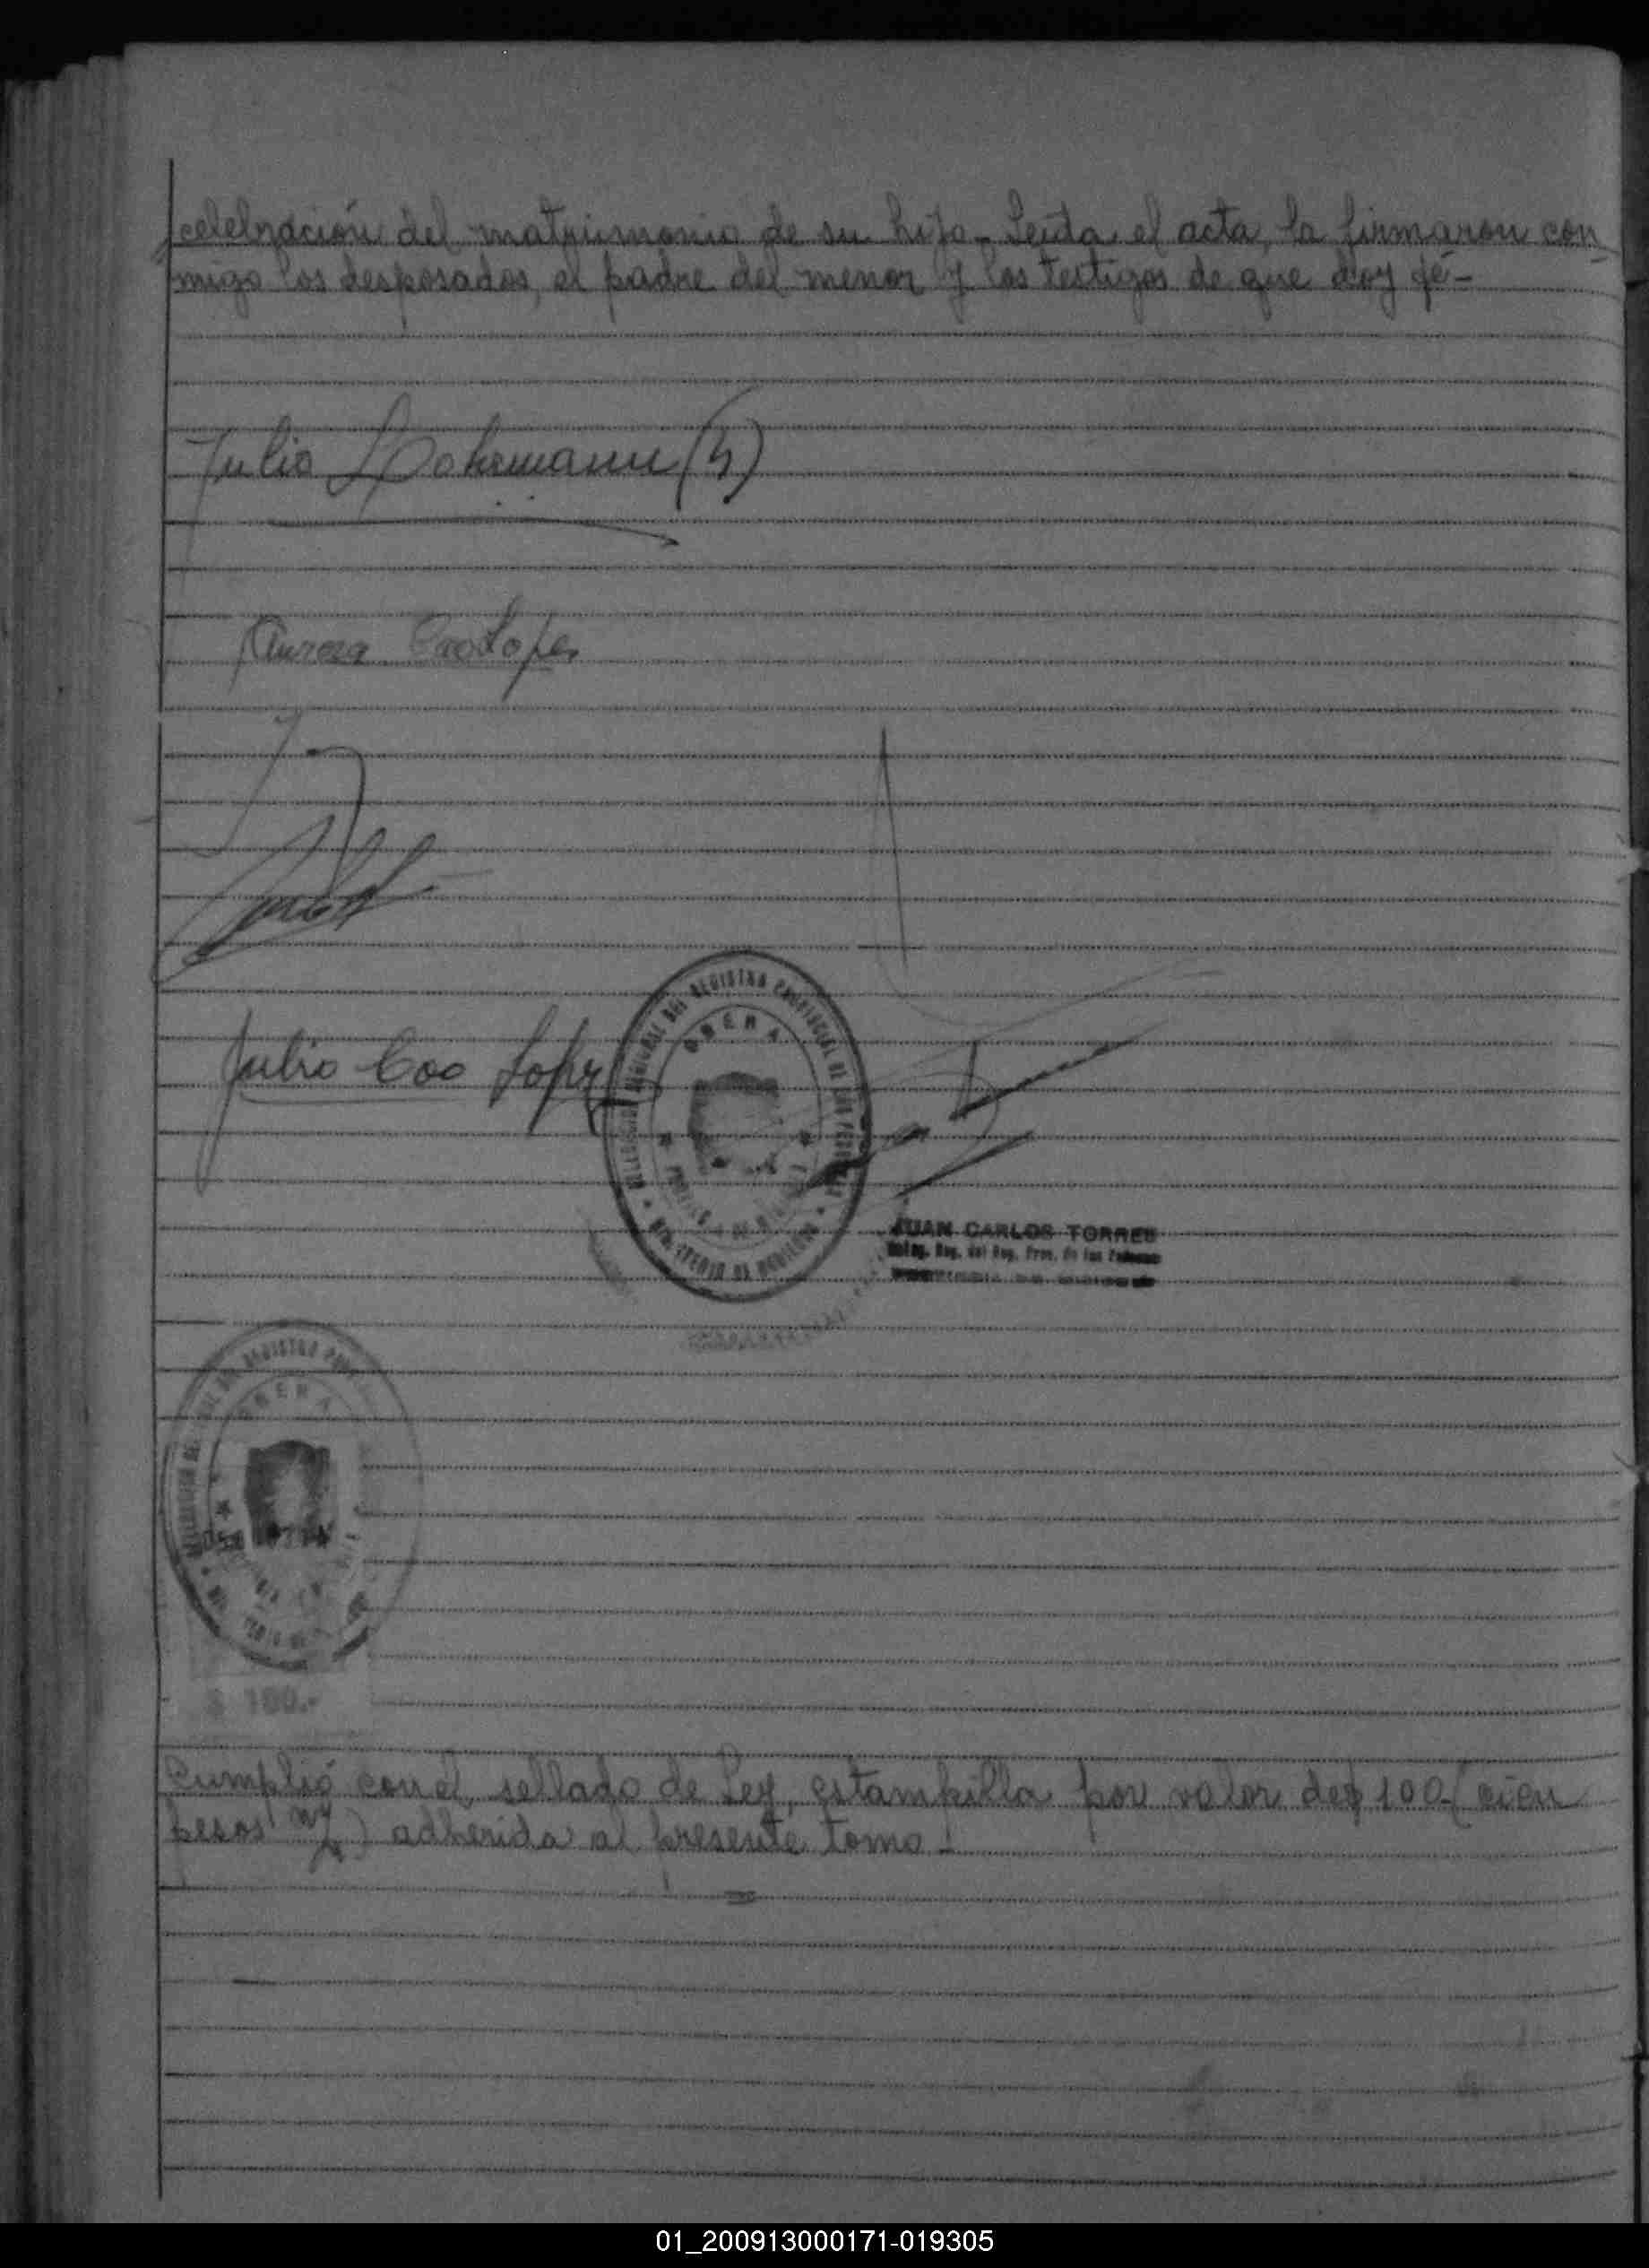 celebración del matrimonio de su hijo - Leida el acta, la firmaron con
migo los desposados, el padre del menor y los testigos de que doy fé -
Julio (h)
Aurora Coo Lopez
Julio Coo Lopez
REGISTRO PROVINCIAL DE LAS PERSONAS
OBERA
JUAN CARLOS TORRES
Deleg. Reg. del Reg. Prov. de las Personas
REGISTRO
OBERA
$ 100.-
Cumplió con el sellado de Ley, estampilla por valor de $ 100 - (cien
pesos m/n) adherida al presente tomo -
01_200913000171-019305